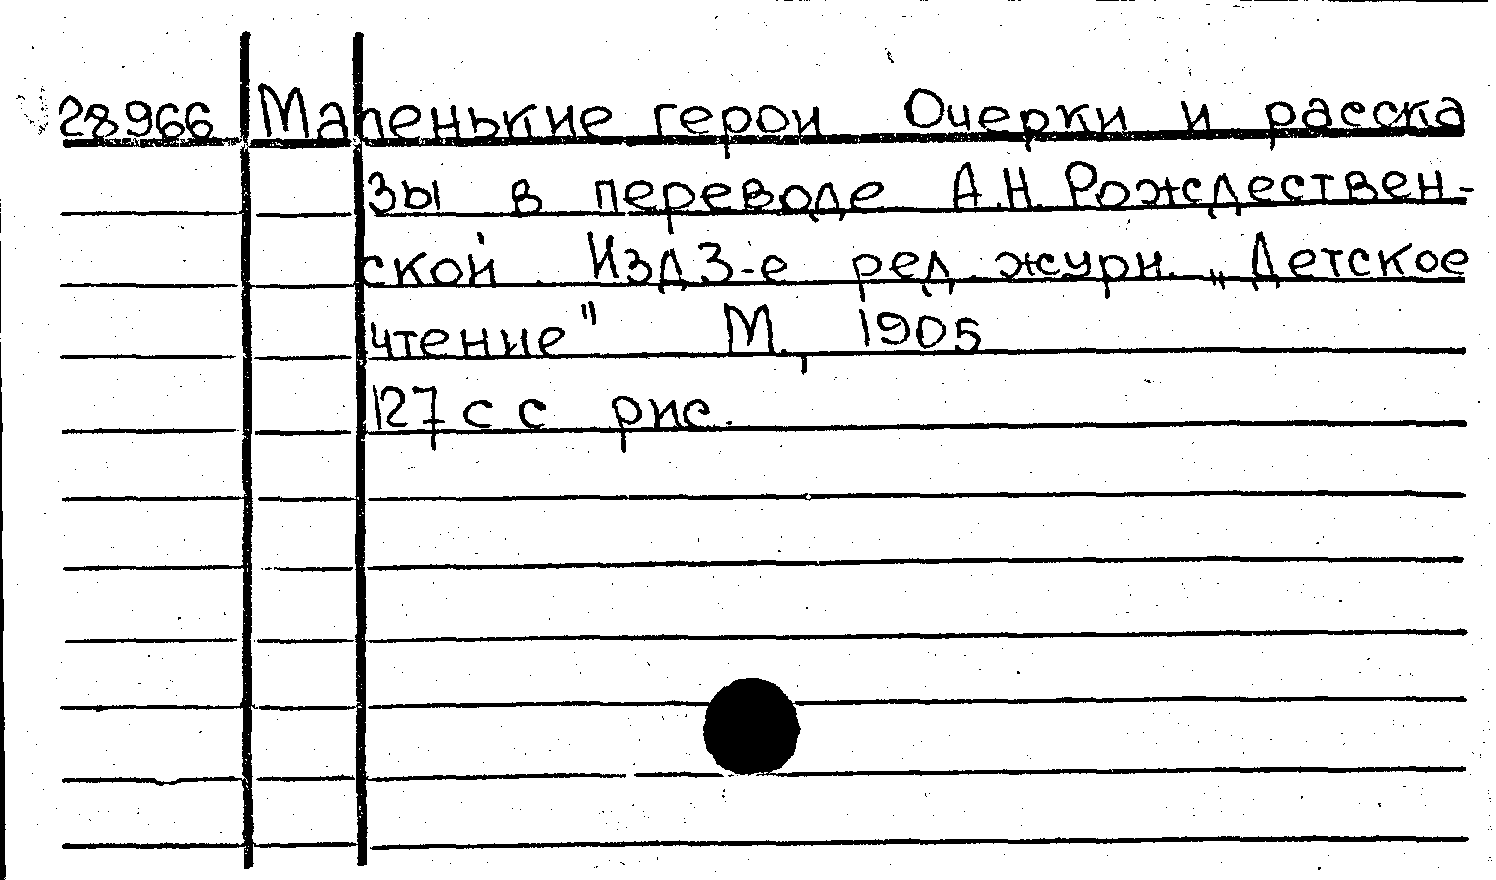 28966 Маленькие герои Очерки и расска
зы в переводе А.Н. Рождествен-
ской. Изд 3-е ред. журн. „Детское
чтение" М., 1905
127 с с рис.